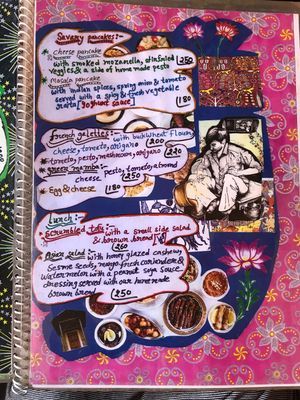 Savary pancakes:-
* Cheese pancake
with smoked mozarella, stirfried
veggies & a side of home made pesto 250
* Masala pancake
with Indian spices, spring onion & tomato
served with a spicy & fresh vegetable
raita [Yoghurt sauce] 180
French galettes:- with buckwheat flour
cheese, tomato, origano 200
* tomato, pesto, mushroom, origano 220
* green mamba:- pesto, tomato, almond
cheese 250
* Egg & cheese 180
Lunch:-
* Scrambled tofu with a small side salad
& brown bread 260
* Asian salad:- with honey glazed cashews
Sesme seeds, mango, fresh coriander &
Watermelon with a peanut soya sauce
dressing served with our homemade
brown bread 250